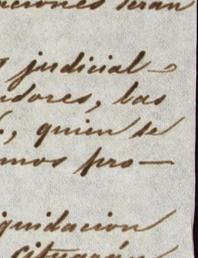 aciones serán
judicial
dores, las
, quien se
mos pro-
quidacion
cituarán